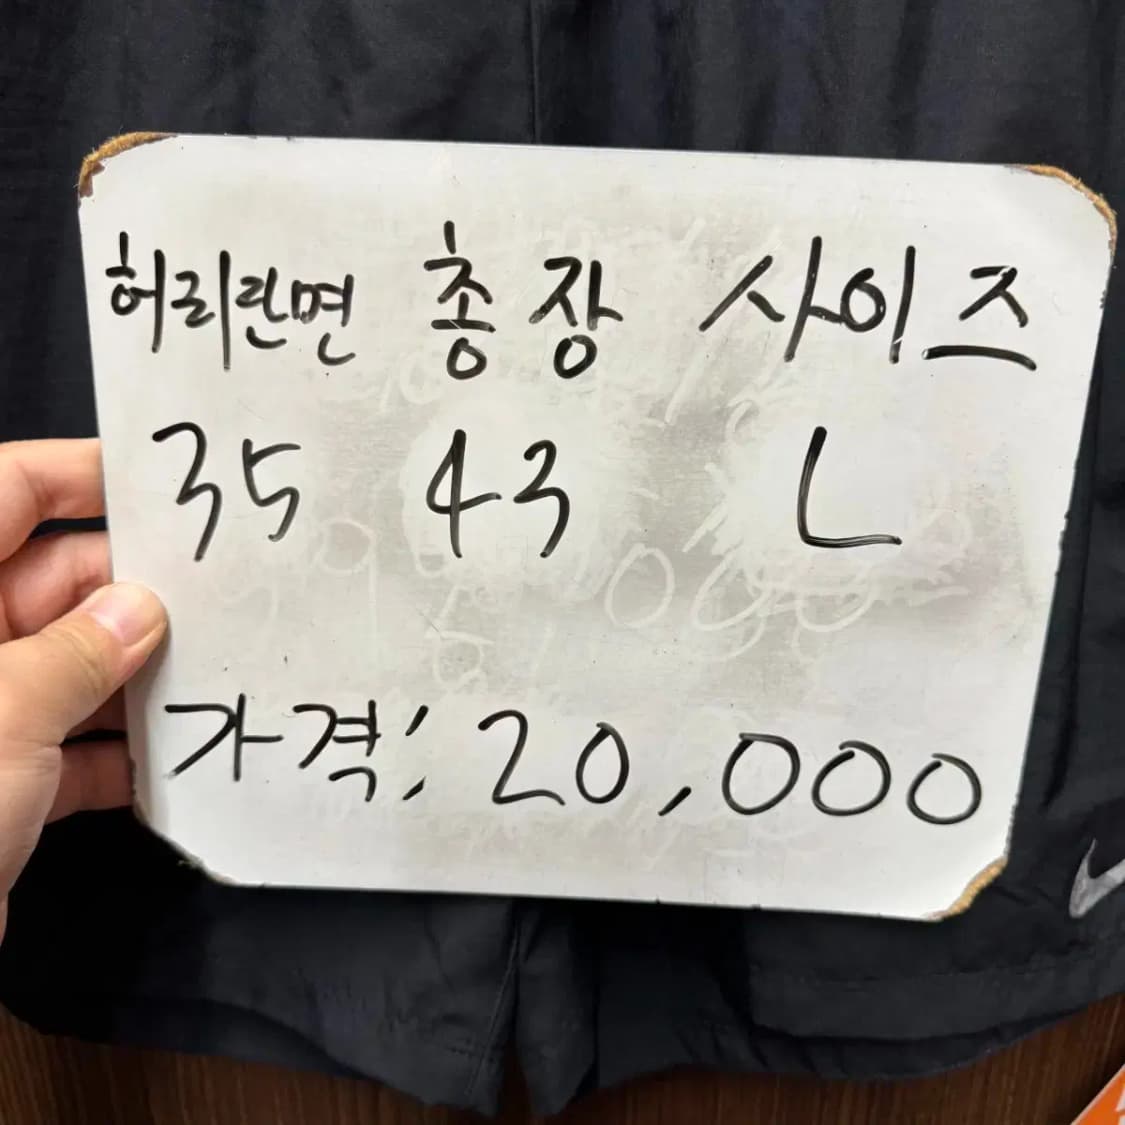 허리란면 총장 사이즈
35 43 L
가격: 20,000